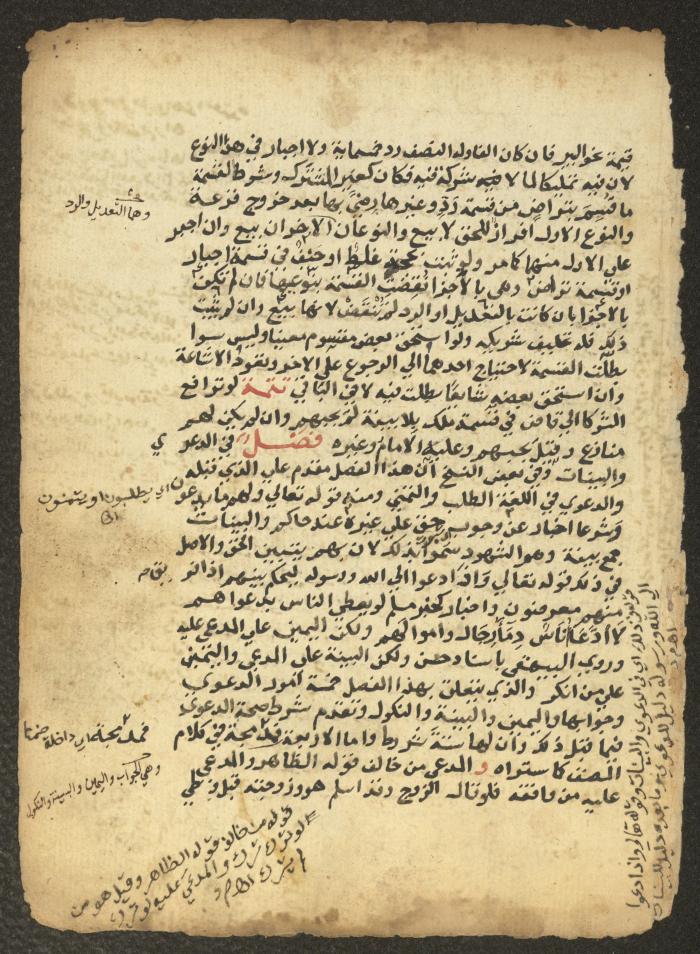 قيمة نحو البير فان كان القاوله النصف رد خمسماية ولا اجبار في هذا النوع
لان فيه تمليكا لما لا فيه شركة فيه فكان كغير المشترك وشرط لقسمة
ما قسم بتراض من قسمة رد وغيرها رضي بها بعد خروج قرعة
والنوع الاول افراز للحق لا بيع والنوعان الاخران بيع وان اجبر
على الاول منهما كما مر ولو ثبت بحجة غلط او حيف في قسمة اجبار
او قسمة تراض وهي بالاجزا نقضت القسمة بنوعيها فان لم تكن
بالاجزا بان كانت بالتعديل او الرد لم تنقض لانها بيع وان لم يثبت
ذلك فله تحليف شريكه ولو استحق بعض مقسوم معينا وليس سوا
بطلت القسمة لاحتياج احدهما الي الرجوع على الاخر وتعود الاشاعة
وان استحق بعضه شايعا بطلت فيه لا في الباقي تتمة لو ترافع
الشركا الي قاض في قسمة ملك بلا بينة لم يجبهم وان لم يكن لهم
منازع وقيل يجبهم وعليه الامام وغيره فصل في الدعو ي
والبينات وفي بعض النسخ ان هذا الفصل مقدم علي الذي قبله
والدعوي في اللغة الطلب والتمني ومنه قوله تعالي ولهم ما يدعون
وشرعا اخبار عن وجوب حق علي غيره عند حاكم والبينات
جمع بينة وهو الشهود سموا بذلك لان بهم يتبين الحق والاصل
في ذلك قوله تعالي واذا دعوا الي الله ورسوله ليحكم بينهم اذا فر يق
منهم معرضون واخبار كخبر مسلم لو يعطي الناس بدعواهم
لادعا ناس دما رجال واموالهم ولكن اليمين علي المدعي عليه
وروي البيهقي باسناد حسن ولكن البينة علي المدعي واليمين
علي من انكر والذي يتعلق بهذا الفصل خمسة امور الدعوي
وجوابها واليمين والبينة والنكول وتقدم شرط صحة الدعوي
فيما قبل ذلك وان لها ستة شروط واما الاربعة فمدمجة في كلام
المصنف كما ستراه والمدعي من خالف قوله الظاهر والمدعي
عليه من وافقه فلو قال الزوج وقد اسلم هو وزوجته قبل وطي
وهما التعديل والرد
اي يطلبون او يتمنون
اهـ
فمدمجة اي داخلة ضمنا
وهي الجواب واليمين والبينة والنكول
قوله من خالف قوله الظاهر وقيل هو من
لو ترك ترك والمدعي عليه لو ترك
لم يترك اهـ م ر
قوله في ذلك اي في الدعوي والبينات وقوله تعالي واذا دعوا
الي الله ورسوله دليل للدعوي وما بعده دليل للبينات